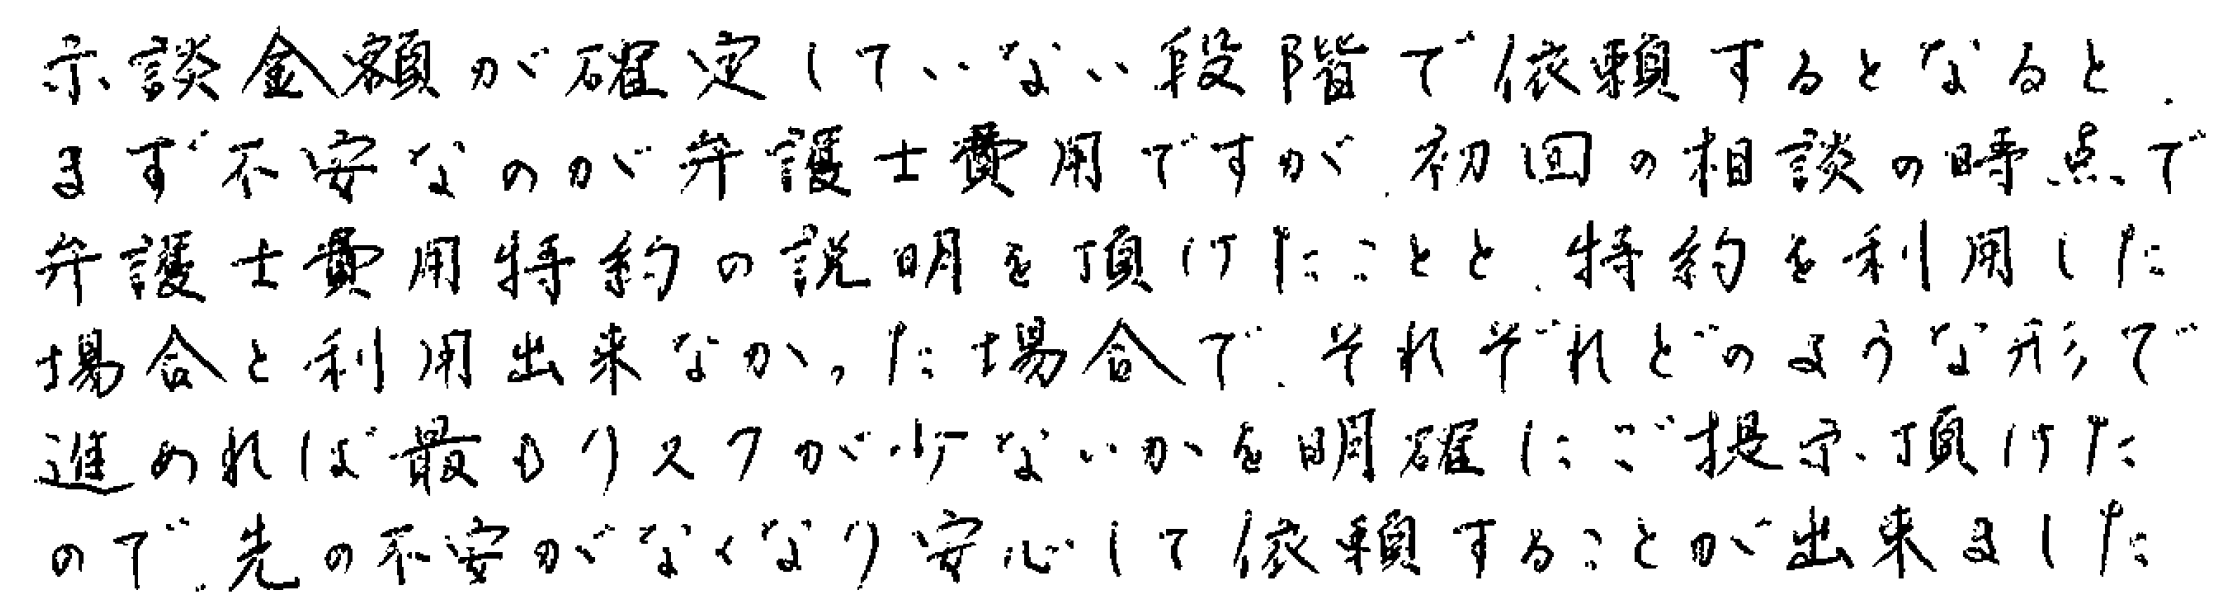 示談金額が確定していない段階で依頼するとなると、
まず不安なのが弁護士費用ですが、初回の相談の時点で
弁護士費用特約の説明を頂けたことと、特約を利用した
場合と利用出来なかった場合で、それぞれどのような形で
進めれば最もリスクが少ないかを明確にご提示頂けた
ので、先の不安がなくなり安心して依頼することが出来ました